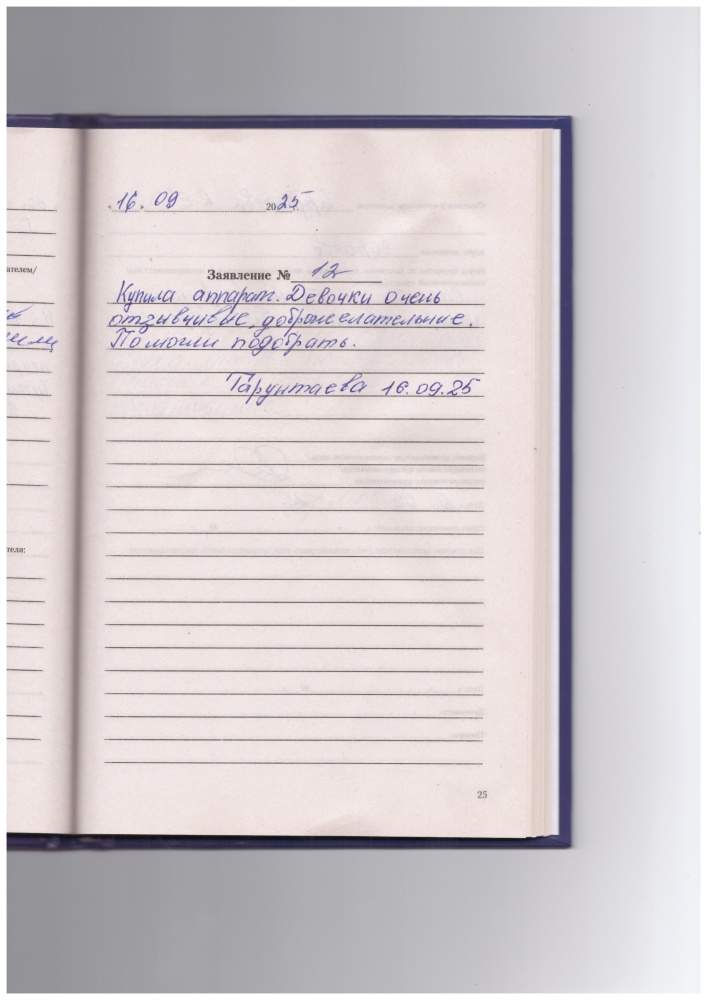 "16" 09 2025
Заявление № 12
Купила аппарат. Девочки очень
отзывчивые, доброжелательные.
Помогли подобрать.
Тарунтаева 16.09.25
ателем/
теля:
25